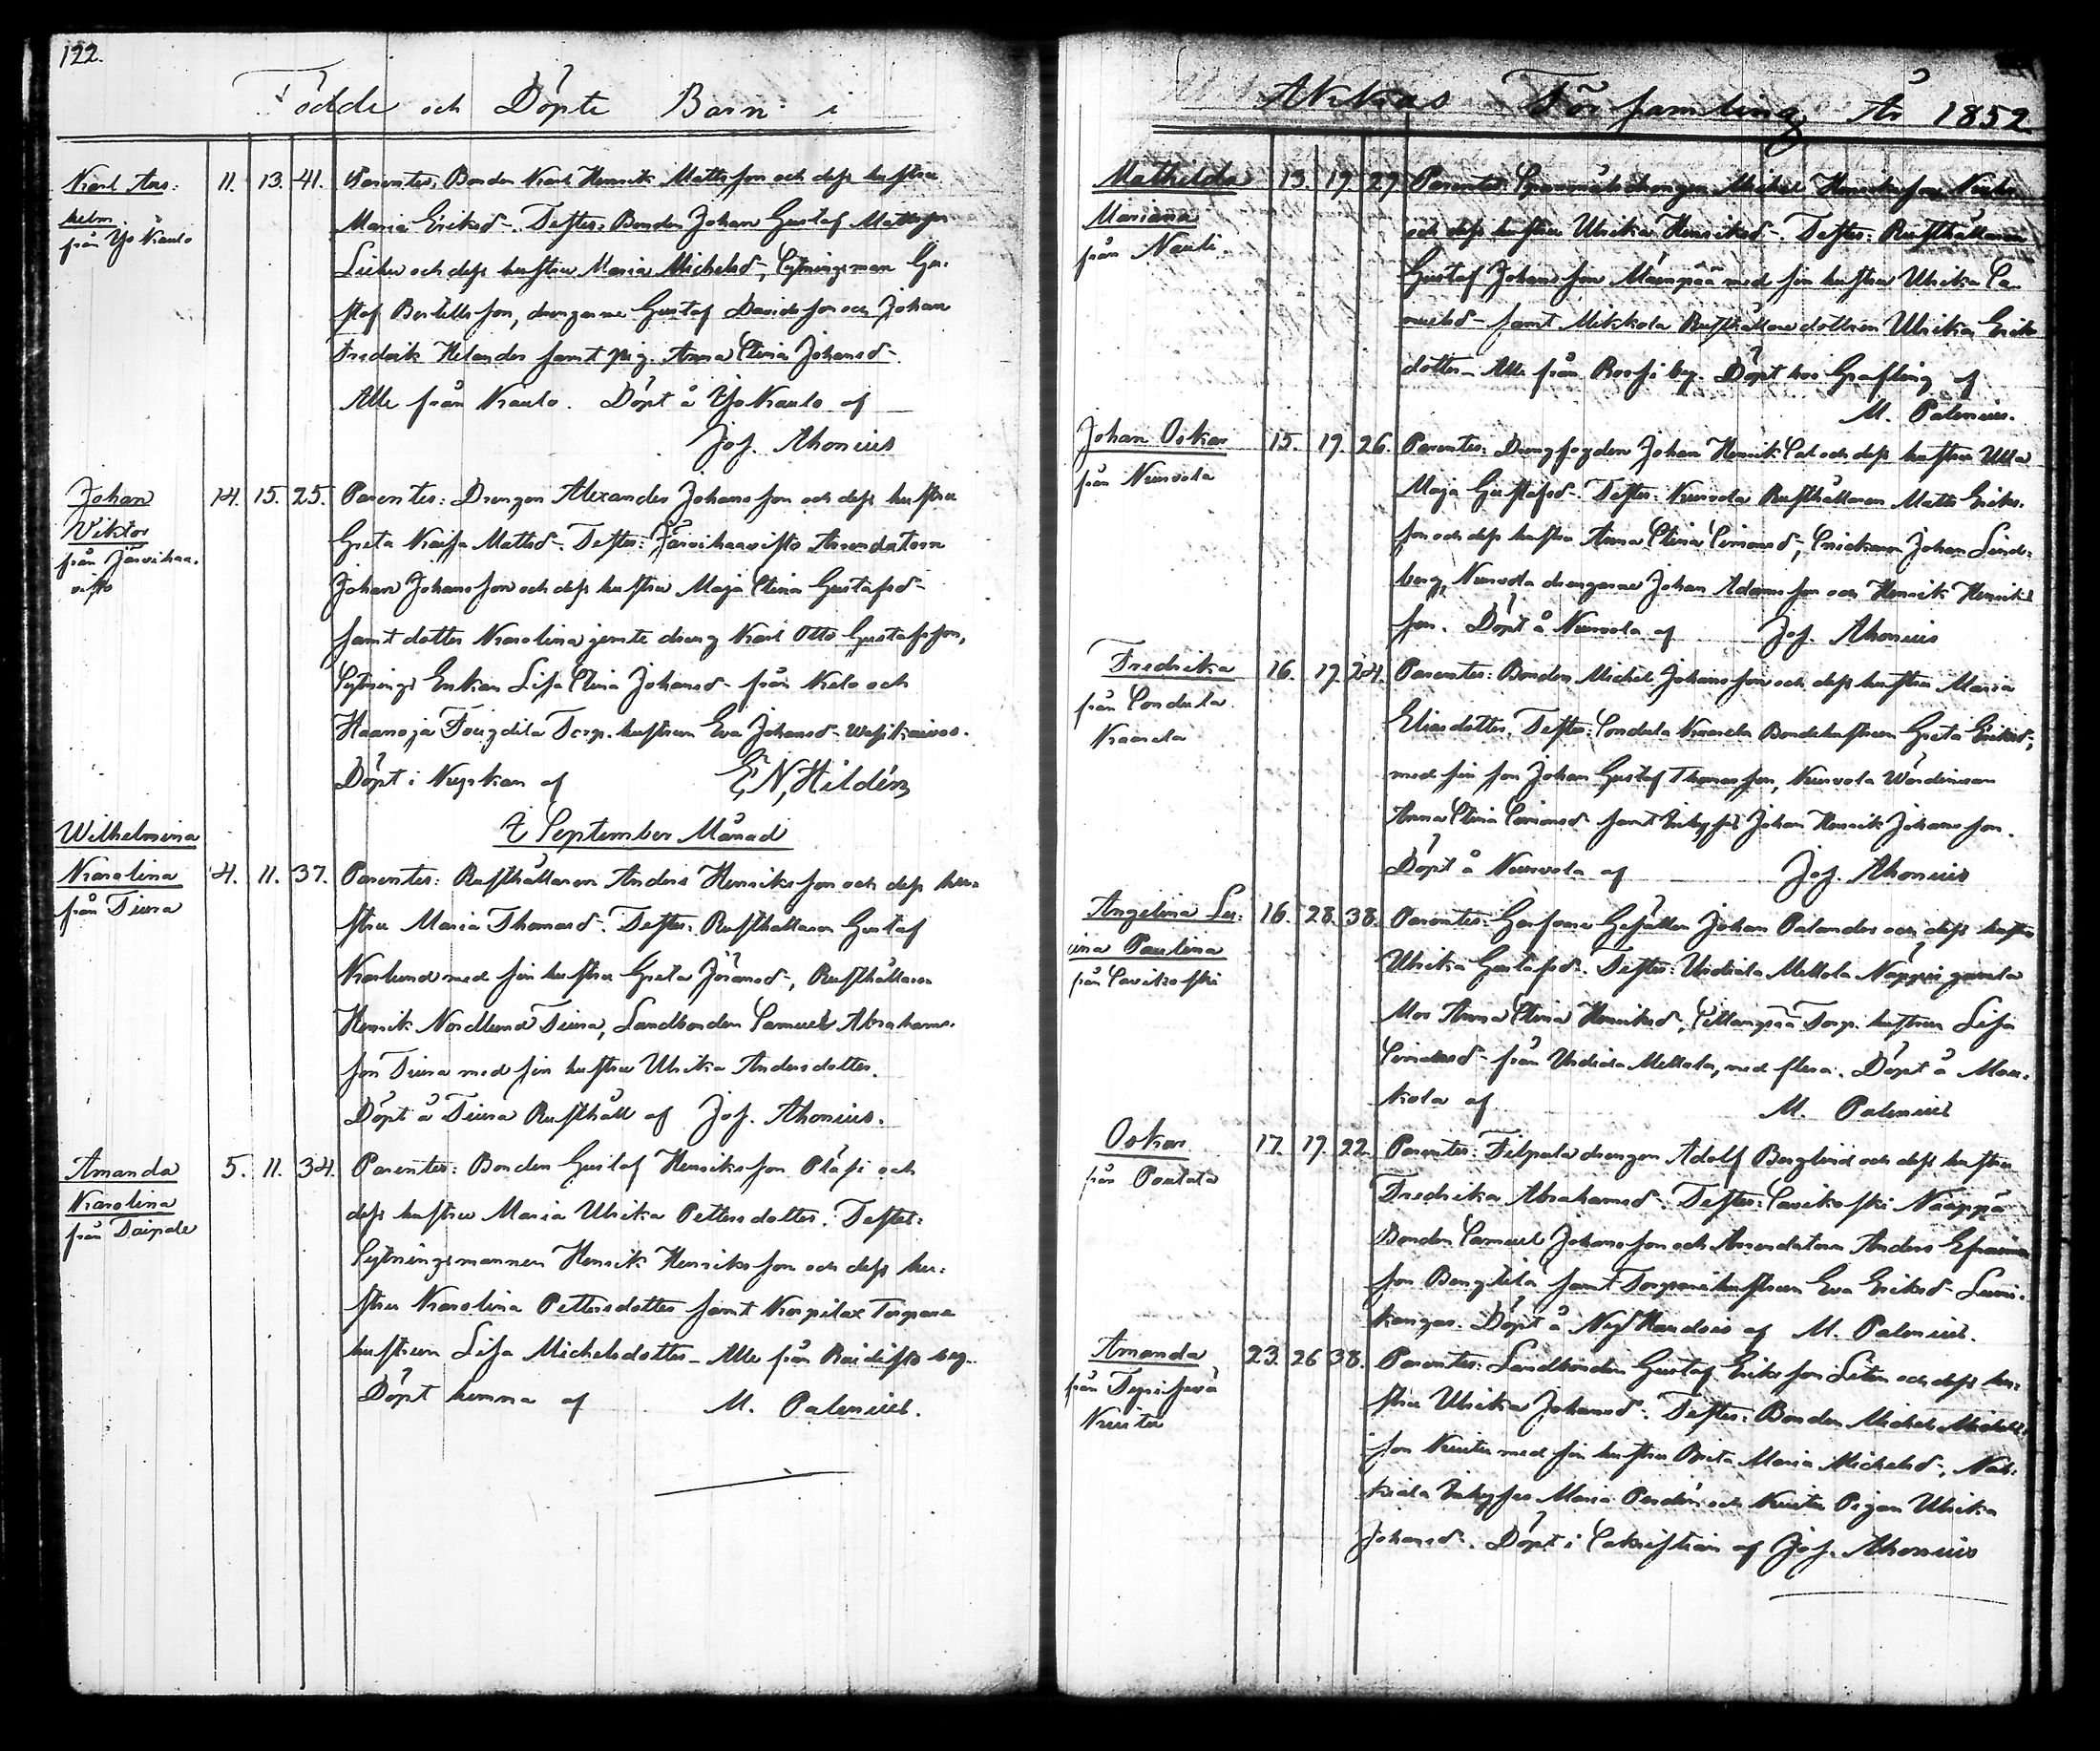 122.
Födde och Döpte Barn i
Karl Ans:
helm
från Yso Kaulo
11. 13. 41. Parentes: Bonden Karl Henrik Mattsson och dess hustru
Maria Eriksd. Testes: Bonden Johan Gustaf Mattsson
och dess hustru Maria Michelsd, Sytningsman Gu-
staf Bertillsson, drengarne Gustaf Davidsson och Johan
Fredrik Helander samt pig. Anna Stina Johansd.
Alle från Kaulo. Döpt å Yso Kaulo af
Jos. Ahonius
Johan
Viktor
från Järvikaa-
visto
14. 15. 25. Parentes: Drengen Alexander Johansson och dess hustru
Greta Kaisa Mattsd. Testes: Järvikaavisto Arrendatorn
Johan Johansson och dess hustru Maja Stina Gustafsd
samt dotter Karolina jemte dreng Karl Otto Gustafsson,
Sytnings Enkan Lisa Stina Johansd från Kelo och
Haanoja Torp. hustrun Eva Johansd
Döpt i Kyrkan af E, N, Hildén
September Månad
Wilhelmina
Karolina
från Tiura
4. 11. 37. Parentes: Rusthållaren Anders Henriksson och dess hu-
stru Maria Thomasd. Testes: Rusthållaren Gustaf
Karlund med sin hustru Greta Jöransd, Rusthållaren
Henrik Nordlund Tiura, Landbonden Samuel Abrahams-
son Tiura med sin hustru Ulrika Andersdotter.
Döpt å Tiura Rusthåll af Jos. Ahonius.
Amanda
Karolina
från Taipale
5. 11. 34. Parentes: Bonden Gustaf Henriksson och
dess hustru Maria Ulrika Pettersdotter. Testes:
Sytningsmannen Henrik Henriksson och dess hu-
stru Karolina Pettersdotter samt Torpare
hustrun Lisa Michelsdotter. Alle från by.
Döpt hemma af M. Palenius.
Akkas Församling År 1852
Mathilda
Mariana
från Nauli.
13. 19. 29. Parentes: drengen Michel Henriksson
och dess hustru Ulrika Henriksd. Testes: Rusthållaren
Gustaf Johansson Mäenpää med sin hustru Ulrika Sa-
muelsd samt Mikkola Rusthållare dottren Ulrika Eriks
dotter. Alle från by. Döpt hos Grafling af
M. Palenius.
Johan Oskar
från Kurvola
15. 19. 26. Parentes: Drengfogden Johan Henrik och dess hustru Ulla
Maja Gustafsd. Testes: Kurvola Rusthållaren Matts Eriks-
son och dess hustru Anna Stina Simonsd, Snickaren Johan Lind-
berg, Kurvola drengarne Johan Adamsson och Henrik Henriks
son. Döpt å Kurvola af Jos. Ahonius
Fredrika
från Sondula
Kaarela
16. 19. 24. Parentes: Bonden Michel Johansson och dess hustru Maria
Eliasdotter. Testes: Sondula Kaarela Bondehustrun Greta Eriksd,
med sin son Johan Gustaf Thomasson, Kurvola Wärdinnan
Anna Stina Simonsd samt Johan Henrik Johansson.
Döpt å Kurvola af Jos. Ahonius
Angelina Lu-
ina Paulina
från Savikoski
16. 28. 38. Parentes: Garfvare Gesällen Johan Palander och dess hustru
Ulrika Gustafsd. Testes: Uidiala Mellola gamla
Mor Anna Stina Henriksd, Torp. hustrun Lisa
från Mellola, med flera. Döpt å Mau-
kola af M. Palenius
Oskar
från Pentola
17. 19. 22. Parentes: Filpula drengen Adolf Berglind och dess hustru
Fredrika Abrahamsd. Testes: Savikoski Näappä
Bonden Samuel Johansson och Arrendatorn Anders Efraims
son samt Torparehustrun Eva Eriksd
Döpt å af M. Palenius.
Amanda
från
Kuuter
23. 26 38. Parentes: Landbonden Gustaf Eriksson och dess hu-
stru Ulrika Johansd. Testes: Bonden Michel Michels-
son med sin hustru Brita Maria Michelsd,
Maria och Pigan Ulrika
Johansd. Döpt i Sakristian af Jos. Ahonius